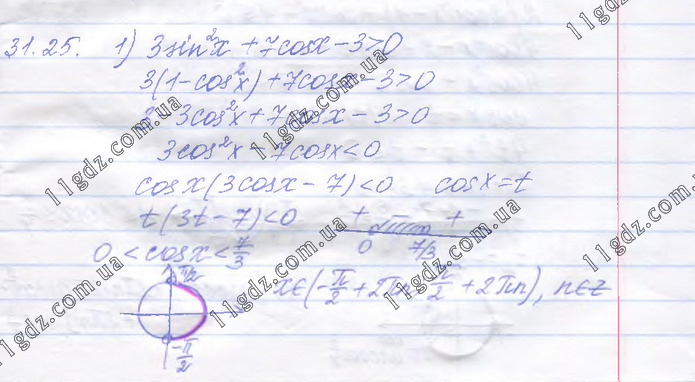 31.25. 1) 3sin²x + 7cosx − 3 > 0
3(1 − cos²x) + 7cosx − 3 > 0
3 − 3cos²x + 7cosx − 3 > 0
3cos²x − 7cosx < 0
cosx(3cosx − 7) < 0 cosx = t
t(3t − 7) < 0 + − +
0 7/3
0 < cosx < 7/3
π/2
x ∈ (−π/2 + 2πn; π/2 + 2πn), n ∈ Z
−π/2
11gdz.com.ua
11gdz.com.ua
11gdz.com.ua
11gdz.com.ua
11gdz.com.ua
11gdz.com.ua
11gdz.com.ua
11gdz.com.ua